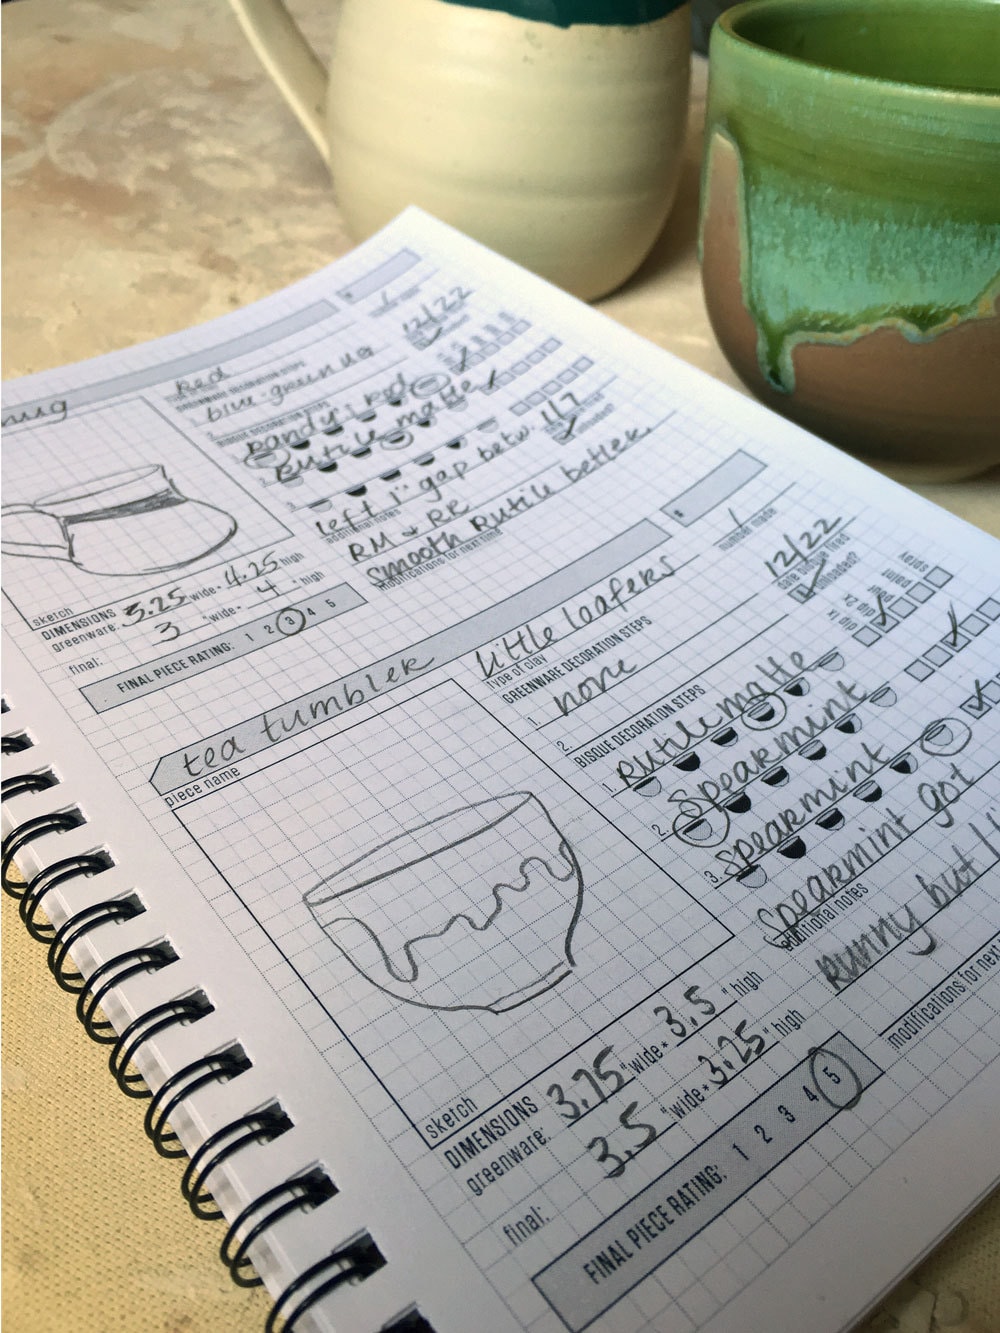 mug
#
1
Red
GREENWARE DECORATION STEPS
12/22
1. blue-green ug
BISQUE DECORATION STEPS
1. Randy's Red
2. Rutile matte
3.
left 1" gap betw.
additional notes
RM & RR
Smooth Rutile better.
modifications for next time
11/7
sketch
DIMENSIONS
greenware: 3.25 "wide × 4.25 "high
final: 3 "wide × 4 "high
FINAL PIECE RATING: 1 2 3 4 5
tea tumbler
piece name
# 1
number made
little loafers
type of clay
12/22
date bisque fired
reloaded?
GREENWARE DECORATION STEPS
1. none
2.
BISQUE DECORATION STEPS
dip x1
dip x2
paint
spray
1. Rutile matte
2. Spearmint
3. Spearmint
Spearmint got
additional notes
runny but I
modifications for next
sketch
DIMENSIONS
greenware: 3.75 "wide × 3.5 "high
final: 3.5 "wide × 3.25 "high
FINAL PIECE RATING: 1 2 3 4 5